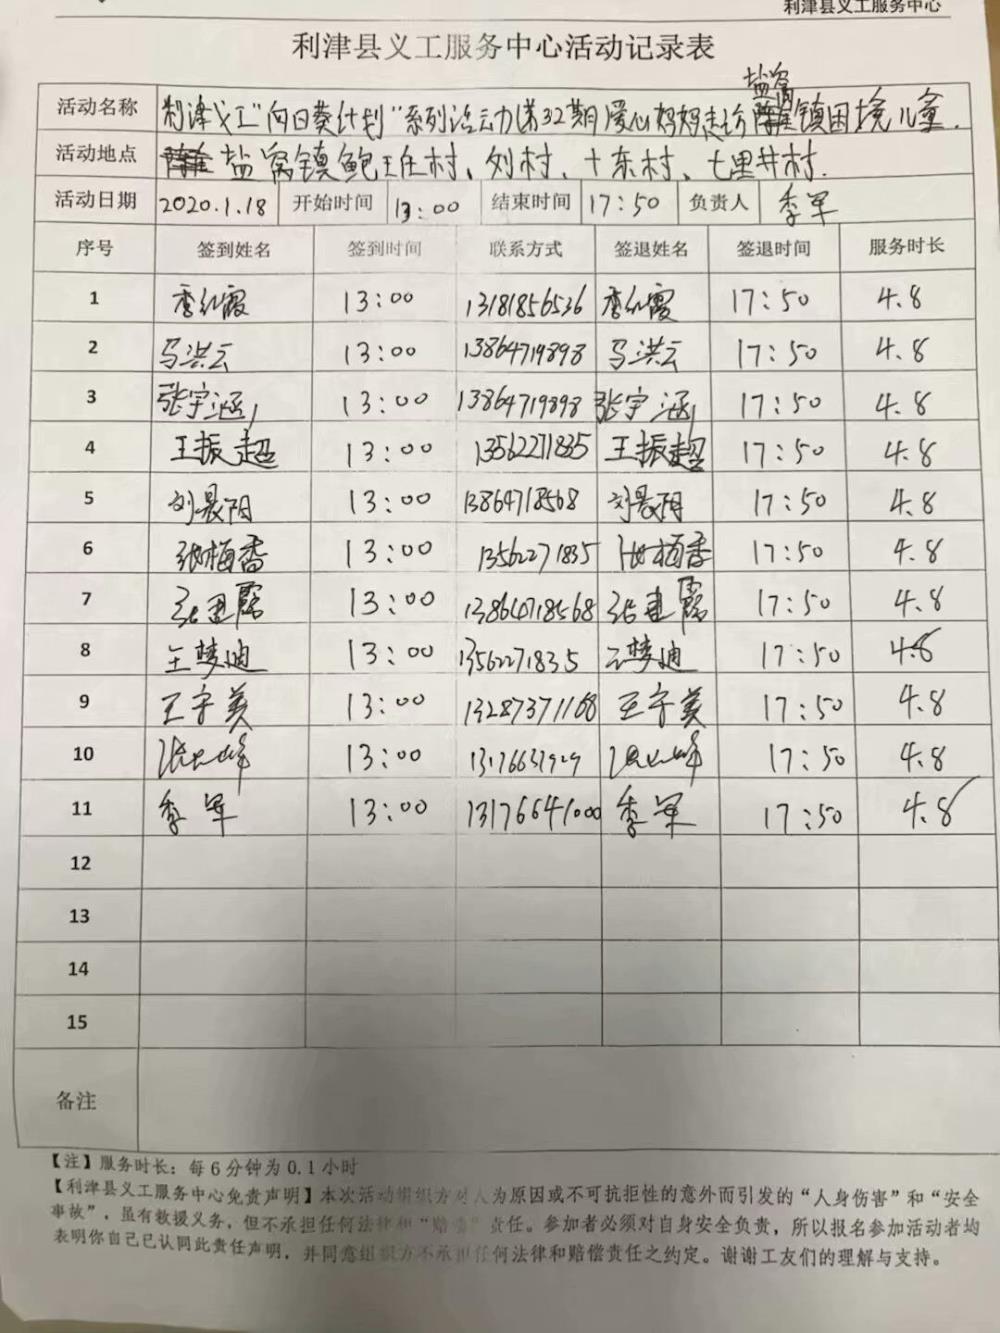 利津县义工服务中心
利津县义工服务中心活动记录表
盐窝
活动名称 利津义工"向日葵计划"系列活动第32期爱心妈妈走访镇困境儿童.
活动地点 盐窝镇鲍王庄村、刘村、十东村、七里井村.
活动日期 2020.1.18 开始时间 13:00 结束时间 17:50 负责人 李军
序号 签到姓名 签到时间 联系方式 签退姓名 签退时间 服务时长
1 李红霞 13:00 13181856536 李红霞 17:50 4.8
2 马洪云 13:00 13864719898 马洪云 17:50 4.8
3 张宇涵 13:00 13864719898 张宇涵 17:50 4.8
4 王振超 13:00 13562271835 王振超 17:50 4.8
5 刘晨阳 13:00 13864718568 刘晨阳 17:50 4.8
6 张梅香 13:00 13562271835 张梅香 17:50 4.8
7 张建霞 13:00 13864718568 张建霞 17:50 4.8
8 王梦迪 13:00 13562271835 王梦迪 17:50 4.8
9 王守美 13:00 13287371168 王守美 17:50 4.8
10 13:00 17:50 4.8
11 李军 13:00 13176641000 李军 17:50 4.8
12
13
14
15
备注
【注】服务时长：每6分钟为0.1小时
【利津县义工服务中心免责声明】本次活动组织方对人为原因或不可抗拒性的意外而引发的“人身伤害”和“安全
事故”，虽有救援义务，但不承担任何法律和“赔偿”责任。参加者必须对自身安全负责，所以报名参加活动者均
表明你自己已认同此责任声明，并同意组织方不承担任何法律和赔偿责任之约定。谢谢工友们的理解与支持。